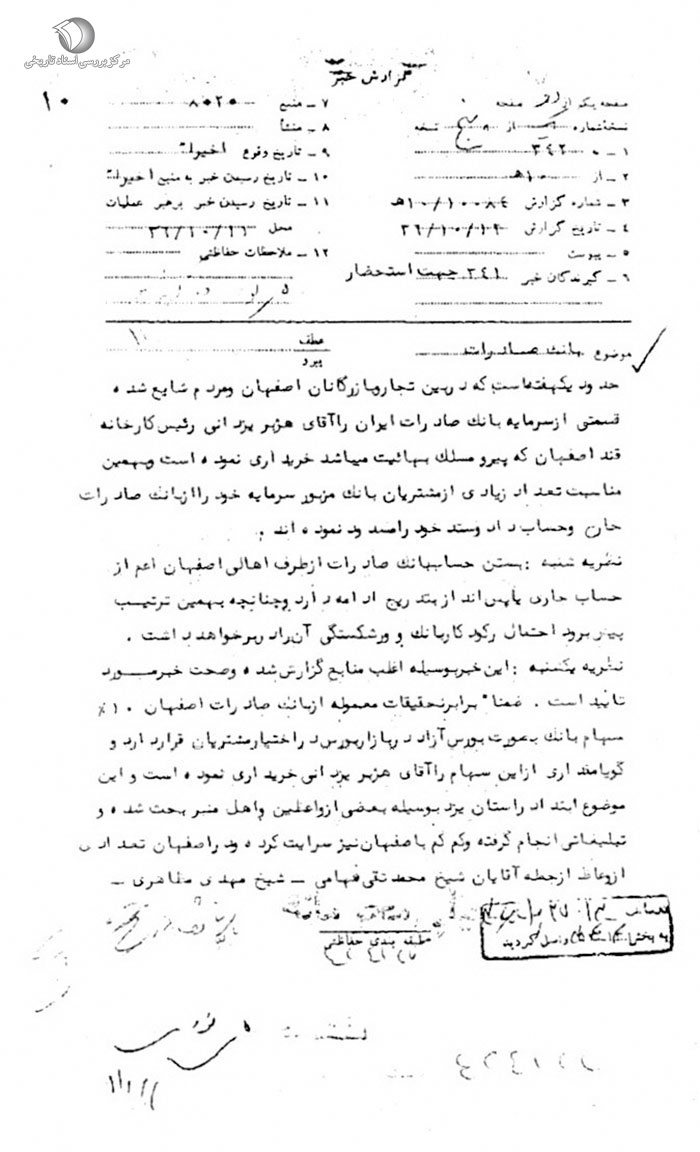 مرکز بررسی اسناد تاریخی
گزارش خبر
۱۰
صفحه یکم از صفحه
نسخه شماره از پنج نسخه
۱ ـ به ۳۴۲
۲ ـ از ۱۰هـ
۳ ـ شماره گزارش ۱۰/۱۰۰۸۴هـ
۴ ـ تاریخ گزارش ۳۶/۱۰/۱۳
۵ ـ پیوست
۶ ـ گیرندگان خبر ۳۴۱ جهت استحضار
۷ ـ منبع ۸۰۲۰
۸ ـ منشأ
۹ ـ تاریخ وقوع اخیرا
۱۰ ـ تاریخ رسیدن خبر به منبع اخیرا
۱۱ ـ تاریخ رسیدن خبر برهبر عملیات
محل ۳۶/۱۰/۱۱
۱۲ ـ ملاحظات حفاظتی
موضوع بانک صادرات
عطف
پیرو
حدود یکهفته‌است که دربین تجاروبازرگانان اصفهان ومردم شایع شده
قسمتی ازسرمایه بانک صادرات ایران راآقای هژبر یزدانی رئیس کارخانه
قند اصفهان که پیرو مسلک بهائیت میباشد خریداری نموده است وبهمین
مناسبت تعداد زیادی ازمشتریان بانک مزبور سرمایه خود راازبانک صادرات
وحساب داد وستد خود رامسدود نموده اند .
نظریه شنبه : بستن حسابهانک صادرات ازطرف اهالی اصفهان اعم از
حساب جاری یاپس‌انداز بتدریج ادامه دارد وچنانچه بهمین ترتیب
پیش برود احتمال رکود کاربانک و ورشکستگی آن رادربرخواهد داشت .
نظریه یکشنبه : این خبربوسیله اغلب منابع گزارش شده وصحت خبرمورد
تائید است . ضمنا" برابرتحقیقات معموله ازبانک صادرات اصفهان ۱۰٪
سهام بانک بصورت بورس آزاد دربازاربورس دراختیارمشتریان قراردارد و
گویامقداری ازاین سهام راآقای هژبر یزدانی خریداری نموده است و این
موضوع ابتدا دراستان یزد بوسیله بعضی ازواعظین واهل منبر بحث شده و
تبلیغاتی انجام گرفته وکم کم باصفهان نیز سرایت کرده ودراصفهان تعدادی
ازوعاظ ازجمله آقایان شیخ محمدتقی فهامی ـ شیخ مهدی مظاهری ـ
طبقه بندی حفاظتی
به بخش واصل گردید